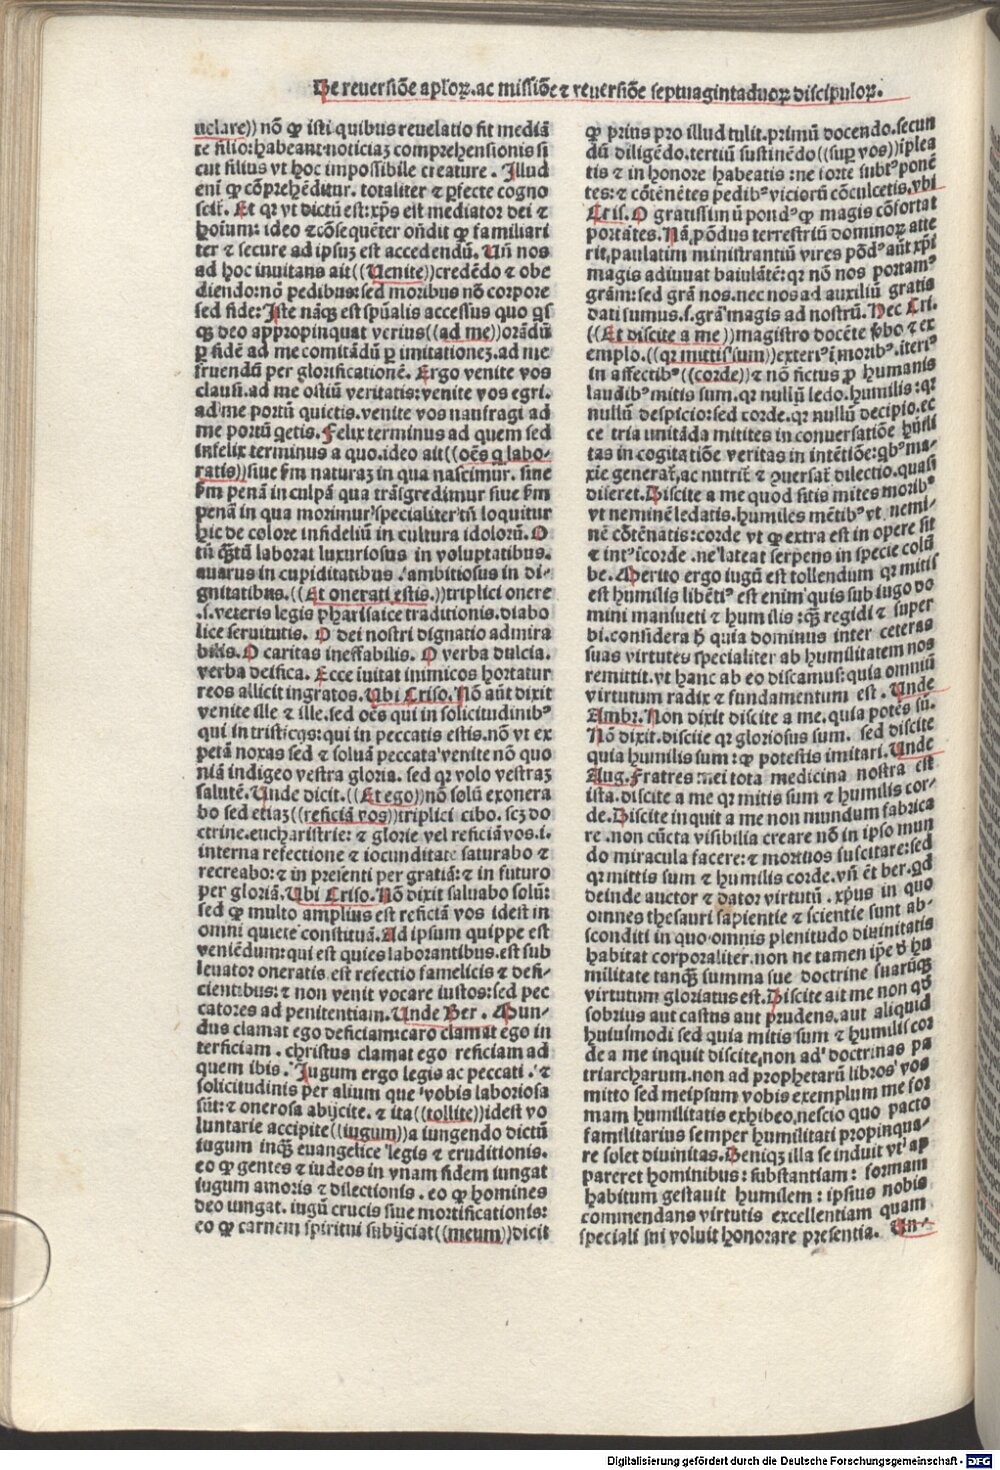 De reuersiõe aplõꝝ.ac missiõe ⁊ reuersiõe septuagintaduoꝝ discipuloꝝ.
uelare)) nõ ꝙ isti quibus reuelatio fit mediã
te filio:habeant noticiaꝫ comprehensionis si
cut filius vt hoc impossibile creature. Illud
eni ꝙ cõprehẽditur. totaliter ⁊ ꝑfecte cogno
scit̃. Et qꝛ vt dictũ est:xp̃s est mediator dei ⁊
hoĩum: ideo ⁊ cõsequẽter oñdit ꝙ familiari
ter ⁊ secure ad ipsuꝫ est accedendũ. Uñ nos
ad hoc inuitans ait((Uenite))credẽdo ⁊ obe
diendo:nõ pedibus:sed moribus nõ corpore
sed fide:Iste nãqꝫ est spũalis accessus quo qͥs
qꝫ deo appropinquat verius((ad me))orãdũ
ꝑ fidẽ ad me comitãdũ ꝑ imitationeꝫ.ad me
fruendũ per glorificationẽ. Ergo venite vos
clausi.ad me ostiũ veritatis:venite vos egri.
ad me portũ quietis.venite vos naufragi ad
me portũ qͥetis. Felix terminus ad quem sed
infelix terminus a quo.ideo ait((oẽs q̇ labo-
ratis))siue ẜm naturaꝫ in qua nascimur. siue
ẜm penã in culpã qua trãsgredimur siue ẜm
penã in qua morimur specialiter tñ loquitur
hic de colore infideliũ in cultura idolorũ. O
tũ qͣꝫtũ laborat luxuriosus in voluptatibus.
auarus in cupiditatibus. ambitiosus in di-
gnitatibus.((Et onerati estis.))triplici onere
.s.veteris legis pharisaice traditionis.diabo
lice seruitutis. O dei nostri dignatio admira
bilis. O caritas ineffabilis. O verba dulcia.
verba deifica. Ecce iuitat inimicos hortatur
reos allicit ingratos. Ubi Criso. Nõ aũt dixit
venite ille ⁊ ille.sed oẽs qui in solicitudinibꝰ
qui in tristicijs:qui in peccatis estis.nõ vt ex
petã noxas sed ⁊ soluã peccata venite nõ quo
niã indigeo vestra gloria. sed qꝛ volo vestraꝫ
salutẽ. Unde dicit.((Et ego))nõ solũ exonera
bo sed etiaꝫ((reficiã vos))triplici cibo. scꝫ do
ctrine.eucharistrie: ⁊ glorie vel reficiã vos.i.
interna refectione ⁊ iocunditate saturabo ⁊
recreabo:⁊ in presenti per gratiã:⁊ in futuro
per gloriã. Ubi Criso. Nõ dixit saluabo solũ:
sed ꝙ multo amplius est reficiã vos idest in
omni quiete constituã. Ad ipsum quippe est
veniẽdum:qui est quies laborantibus.est sub
leuator oneratis.est refectio famelicis ⁊ defi-
cientibus:⁊ non venit vocare iustos:sed pec
catores ad penitentiam. Unde Ber. Mun-
dus clamat ego deficiam:caro clamat ego in
terficiam. christus clamat ego reficiam ad
quem ibis. Iugum ergo legis ac peccati. ⁊
solicitudinis per alium que vobis laboriosa
sũt:⁊ onerosa abijcite. ⁊ ita((tollite))idest vo
luntarie accipite((iugum))a iungendo dictũ
iugum inqꝫ euangelice legis ⁊ eruditionis.
eo ꝙ gentes ⁊ iudeos in vnam fidem iungat
iugum amoris ⁊ dilectionis. eo ꝙ homines
deo iungat. iugũ crucis siue mortificationis:
eo ꝙ carnem spiritui subijciat((meum))dicit
ꝙ prius pro illud tulit.primũ docendo.secun
dũ diligẽdo.tertiũ sustinẽdo((suꝑ vos))iplea
tis ⁊ in honore habeatis:ne forte subtꝰ ponẽ
tes:⁊ cõtẽnẽtes pedibꝰ viciorũ cõculcetis.vbi
Cris. O gratissimũ pondꝰ qͦ magis cõfortat
portãtes. Nã põdus terrestriũ dominoꝝ atte
rit,paulatim ministrantiũ vires põdꝰ aũt xp̃i
magis adiuuat baiulãtẽ:qꝛ nõ nos portamꝰ
grãm:sed grã nos.nec nos ad auxiliũ gratis
dati sumus.s.grã magis ad nostrũ. Hec Cri.
((Et discite a me))magistro docẽte ṽbo ⁊ ex
emplo.((qꝛ mitis sum))exteriꝰ ĩ moribꝰ.iteriꝰ
in affectibꝰ((corde))⁊ nõ fictus ꝓ humanis
laudibꝰ mitis sum.qꝛ nullũ ledo.humilis:qꝛ
nullũ despicio:sed corde.qꝛ nullũ decipio.ec
ce tria unitãda mitites in conuersatiõe hũili
tas in cogitatiõe veritas in intẽtiõe:qͥbꝰ ma-
xie generat̃,ac nutrit̃ ⁊ ꝯuersat̃ dilectio.quasi
diceret. Discite a me quod sitis mites moribꝰ
vt neminẽ ledatis.humiles mẽtibꝰ vt nemi-
nẽ cõtẽnatis:corde vt ꝙ extra est in opere sit
⁊ intꝰ i corde .ne lateat serpens in specie colũ
be. Merito ergo iugũ est tollendum qꝛ mitis
est humilis libẽtiꝰ est enim quis sub iugo do
mini mansueti ⁊ humilis:qͣꝫ regidi ⁊ super
bi.considera ħ quia dominus inter ceteras
suas virtutes specialiter ab humilitatem nos
remittit.vt hanc ab eo discamus:quia omniũ
virtutum radix ⁊ fundamentum est. Unde
Ambr. Non dixit discite a me.quia potẽs sũ.
Nõ dixit.discite qꝛ gloriosus sum. sed discite
quia humilis sum:ꝙ potestis imitari. Unde
Aug. Fratres mei tota medicina nostra est
ista.discite a me qꝛ mitis sum ⁊ humilis cor-
de. Discite inquit a me non mundum fabrica
re .non cũcta visibilia creare nõ in ipso mun
do miracula facere:⁊ mortuos suscitare:sed
qꝛ mittis sum ⁊ humilis corde.vñ ẽt ber.qd̃
deinde auctor ⁊ dator virtutũ .xp̃us in quo
omnes thesauri sapientie ⁊ scientie sunt ab-
sconditi in quo omnis plenitudo diuinitatis
habitat corporaliter.non ne tamen ip̃e ð hu
militate tanqꝫ summa sue doctrine suarũqꝫ
virtutum gloriatus est. Discite ait me non qꝛ
sobrius aut castus aut prudens.aut aliquid
huiusmodi sed quia mitis sum ⁊ humilis cor
de a me inquit discite,non ad doctrinas pa
triarcharum.non ad prophetarũ libros vos
mitto sed meipsum vobis exemplum me for
mam humilitatis exhibeo,nescio quo pacto
familiarius semper humilitati propinqua-
re solet diuinitas. Deniqꝫ illa se induit vt ap
pareret hominibus: substantiam: formam
habitum gestauit humilem: ipsius nobis
commendans virtutis excellentiam quam
speciali sui voluit honorare presentia. Un-
Digitalisierung gefördert durch die Deutsche Forschungsgemeinschaft - DFG